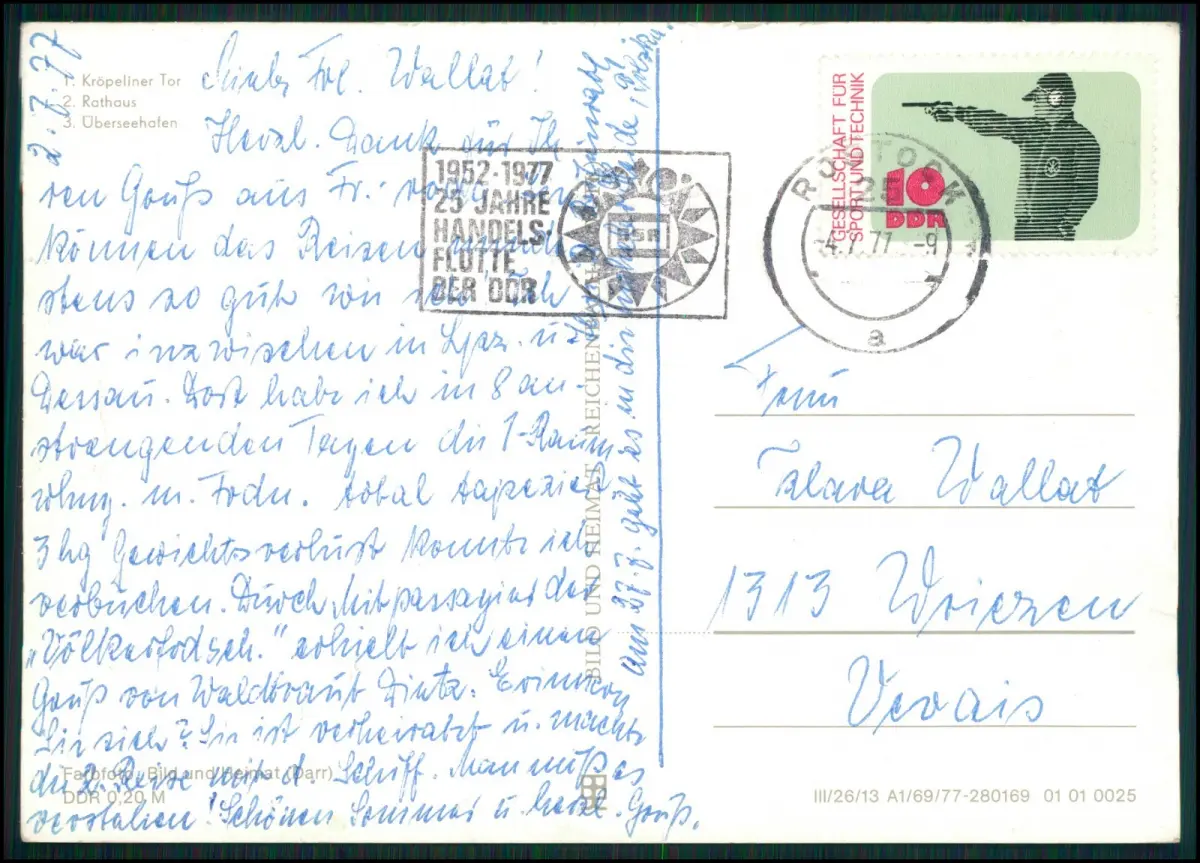 2.7.77
1. Kröpeliner Tor
2. Rathaus
3. Überseehafen
Liebe Frl. Wallat!
Herzl. Dank für Ih
ren Gruß aus Fr.
können das Reisen
stens so gut wie Ich
war inzwischen in Lpz. u.
Dessau. Dort habe ich in 8 an-
strengenden Tagen die 1-Raum
whng. m. Frdn. total tapeziert
3 kg Gewichtsverlust konnte ich
verbuchen. Durch Mitpassagier der
"Völkerfrdsch." erhielt ich einen
Gruß von Waldtraut Dietz. Erinnern
Sie sich? Sie ist verheiratet u. machte
die 2. Reise mit d. Schiff. Man muß es
verstehen! Schönen Sommer u. herzl. Gruß.
am 27.7. geht es in die
BILD UND HEIMAT REICHENBACH
Farbfoto: Bild und Heimat (Darr)
DDR 0,20 M
1952-1977
25 JAHRE
HANDELS-
FLOTTE
DER DDR
DSR
ROSTOCK
25
-4.7.77-9
a
GESELLSCHAFT FÜR
SPORT UND TECHNIK
10
DDR
Frau
Klara Wallat
1313 Wriezen
Verais
III/26/13 A1/69/77-280169 01 01 0025